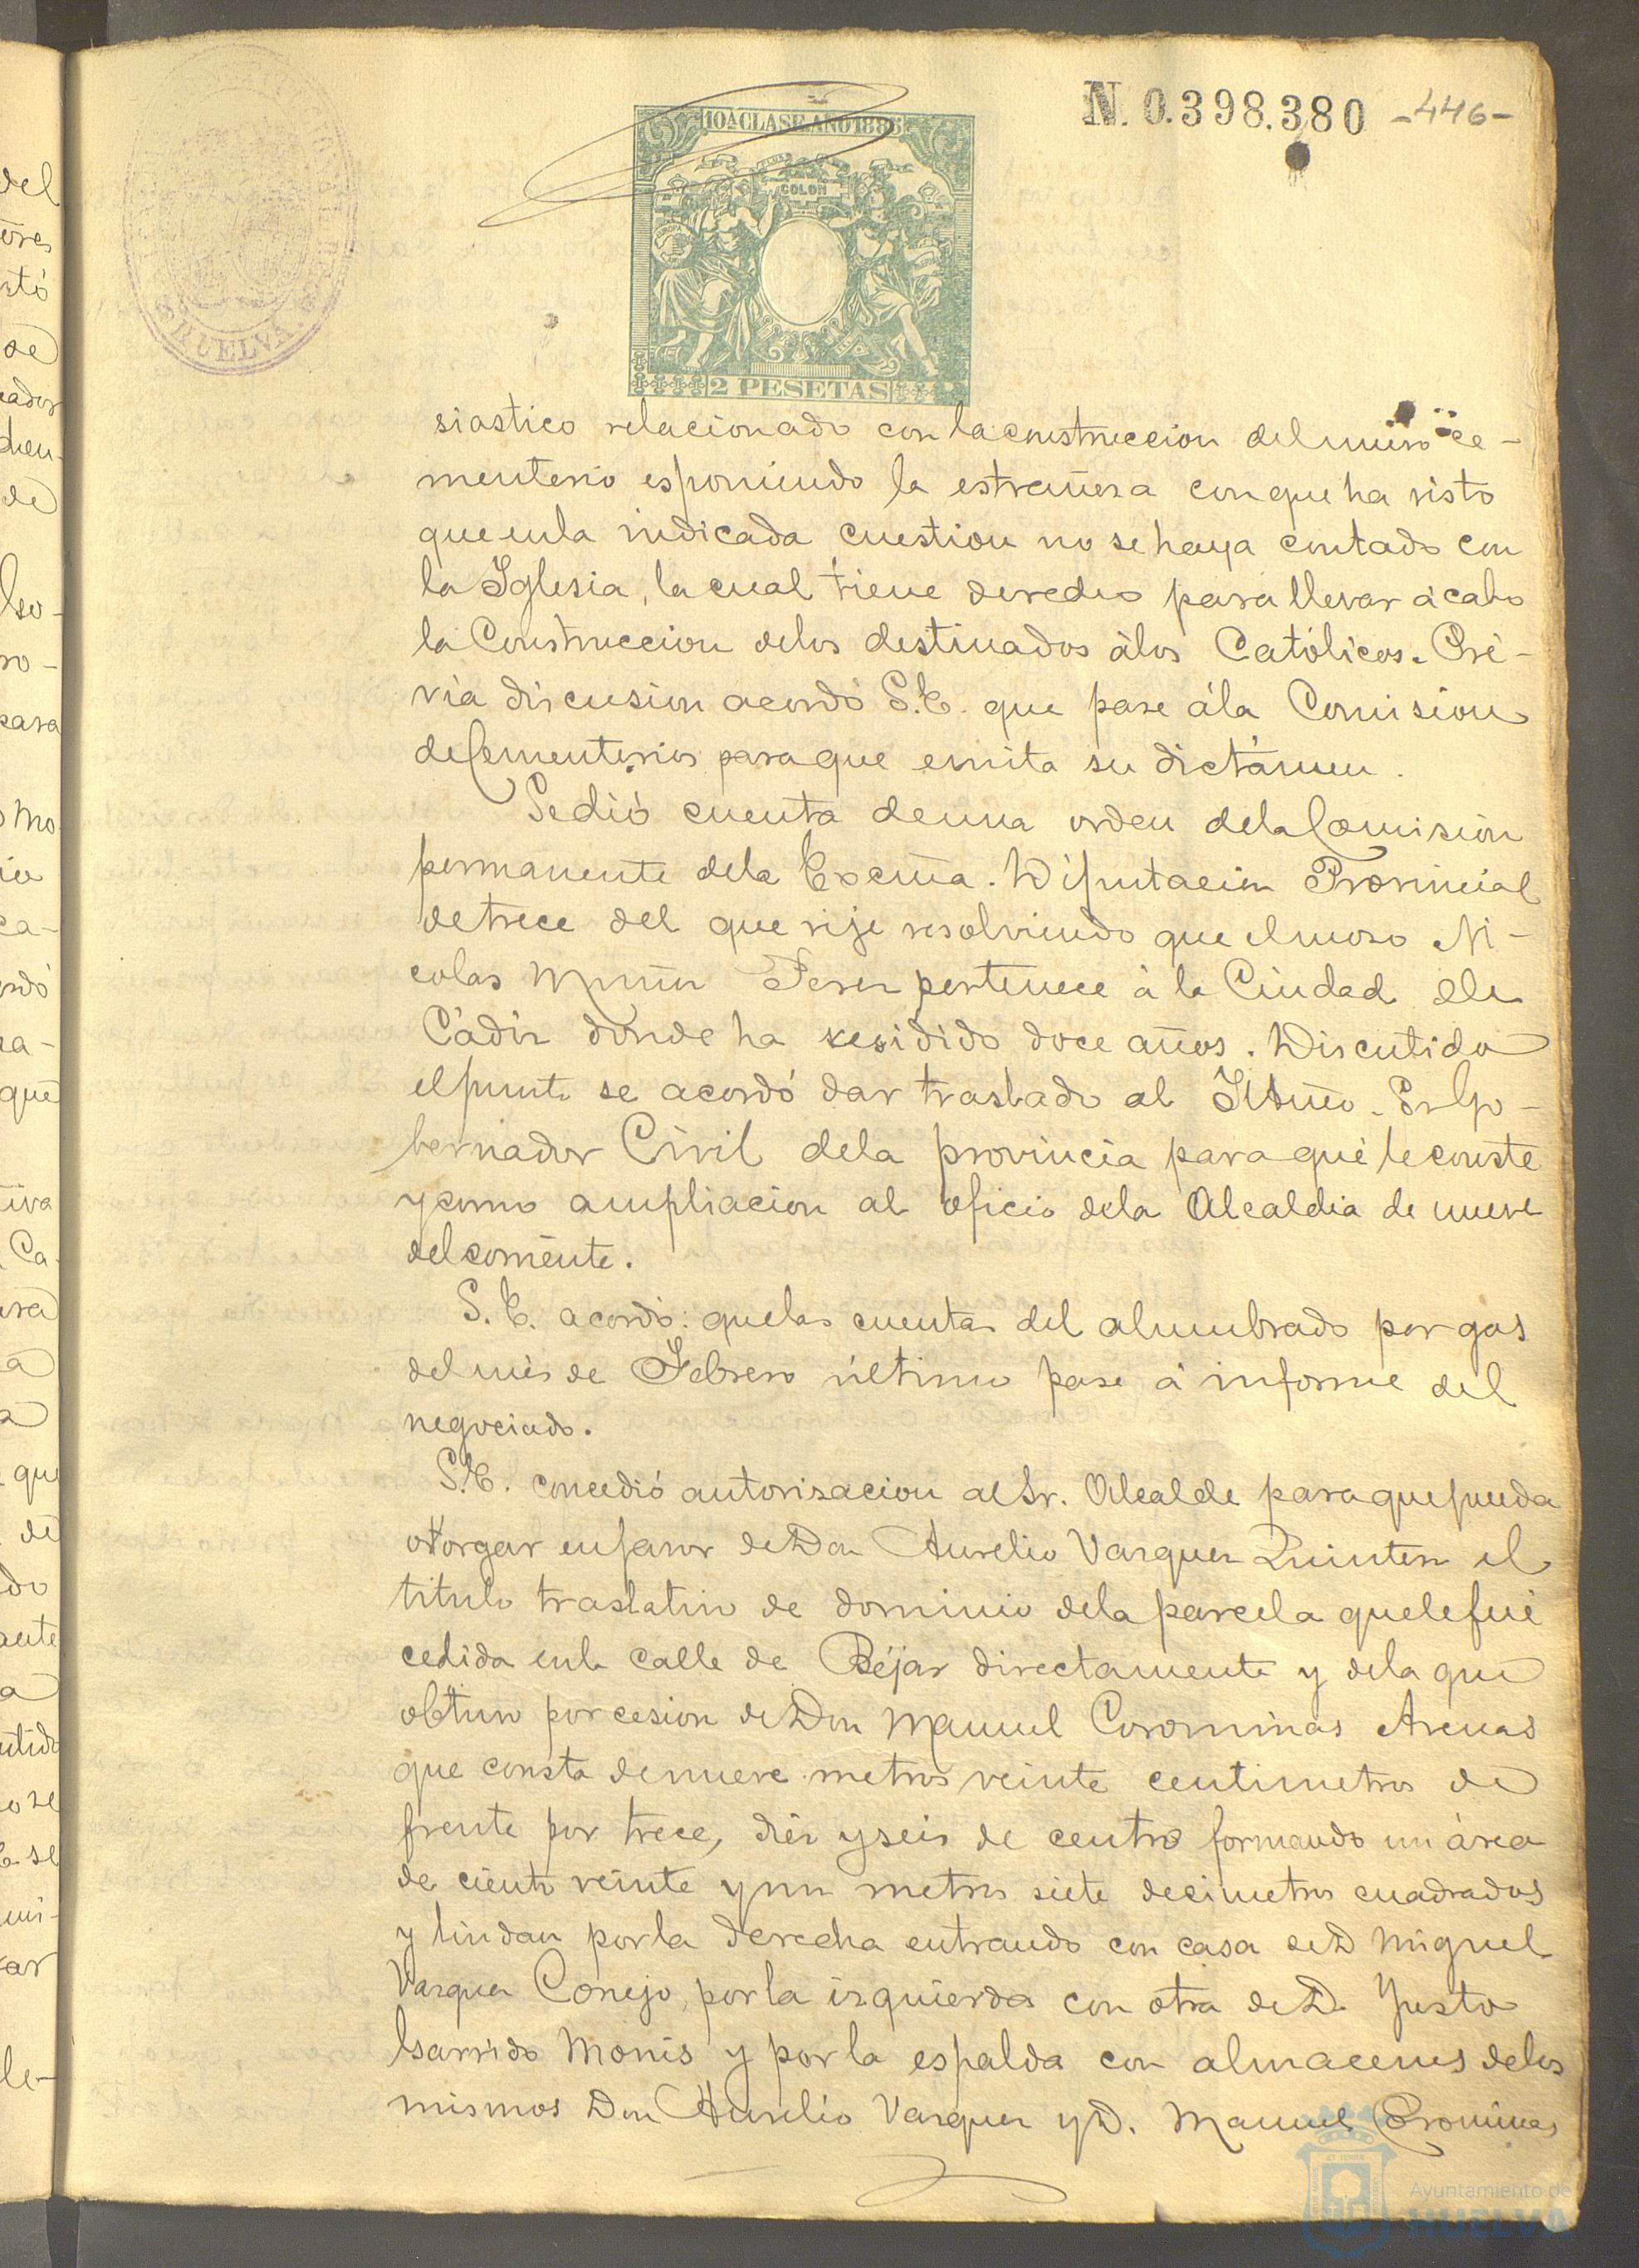 N. 0.398.380 -446-
10ª CLASE. AÑO 1886
COLON
EUROPA
2 PESETAS
HUELVA.
siastico relacionado con la construccion del nuevo ce-
menterio esponiendo la estrañesa con que ha visto
que en la indicada cuestion no se haya contado con
la Iglesia, la cual tiene derecho para llevar á cabo
la Construccion de los destinados á los Católicos. Pré-
via discusion acordó S.E. que pase á la Comision
de Cementerios para que emita su dictámen.
Se dió cuenta de una orden de la Comision
permanente de la Excma. Diputacion Provincial
de trece del que rije resolviendo que el moso Ni-
colas Muñoz Perez pertenece á la Ciudad de
Cádiz donde ha residido doce años. Discutido
el punto se acordó dar traslado al Iltmo. Sr Go-
bernador Civil de la provincia para que le conste
y como ampliacion al oficio de la Alcaldia de nueve
del corriente.
S.E. acordó: que las cuentas del alumbrado por gas
del mes de Febrero último pase á informe del
negociado.
S.E. concedió autorisacion al Sr. Alcalde para que pueda
otorgar en favor de Don Aurelio Vazquez Quintero el
titulo traslativo de dominio de la parcela que le fué
cedida en la calle de Béjar directamente y de la que
obtuvo por cesion de Don Manuel Corominas Arenas
que consta de nueve metros veinte centimetros de
frente por trece, diez y seis de centro formando un área
de ciento veinte y un metros siete decimetros cuadrados
y lindan por la derecha entrando con casa de D Miguel
Vazquez Conejo, por la izquierda con otra de D. Justo
Garrido Monis y por la espalda con almacenes de los
mismos Don Aurelio Vazquez y D. Manuel Corominas
Ayuntamiento de
HUELVA